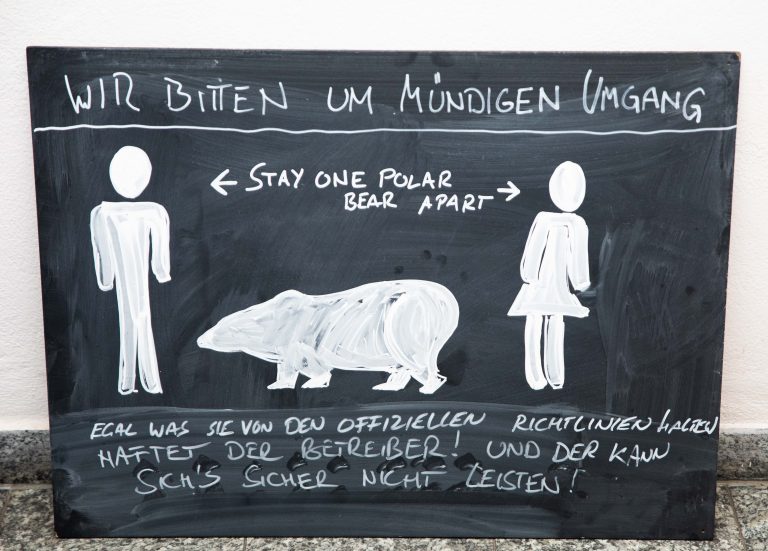 WIR BITTEN UM MÜNDIGEN UMGANG
← STAY ONE POLAR
BEAR APART →
EGAL WAS SIE VON DEN OFFIZIELLEN RICHTLINIEN HALTEN
HAFTET DER BETREIBER! UND DER KANN
SICH'S SICHER NICHT LEISTEN!